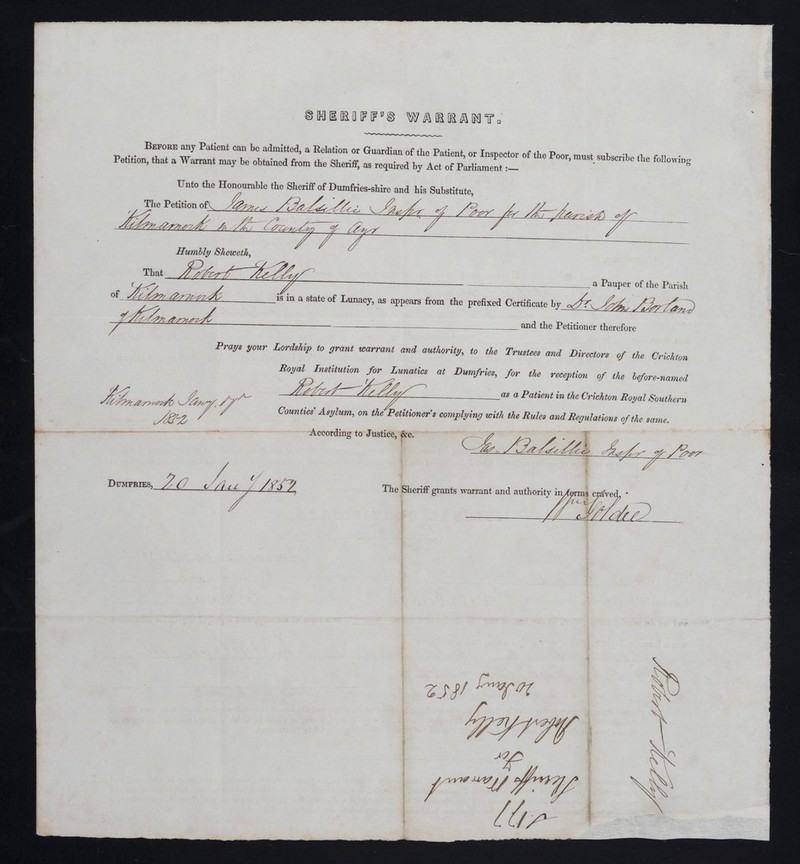 SHERIFF'S WARRANT.
BEFORE any Patient can be admitted, a Relation or Guardian of the Patient, or Inspector of the Poor, must subscribe the following
Petition, that a Warrant may be obtained from the Sheriff, as required by Act of Parliament :—
Unto the Honourable the Sheriff of Dumfries-shire and his Substitute,
The Petition of James Balsillie Inspr. of Poor for the parish of
Kilmarnock in the County of Ayr
Humbly Sheweth,
That Robert Kelly a Pauper of the Parish
of Kilmarnock is in a state of Lunacy, as appears from the prefixed Certificate by Dr. John Borland
of Kilmarnock and the Petitioner therefore
Prays your Lordship to grant warrant and authority, to the Trustees and Directors of the Crichton
Royal Institution for Lunatics at Dumfries, for the reception of the before-named
Robert Kelly as a Patient in the Crichton Royal Southern
Counties' Asylum, on the Petitioner's complying with the Rules and Regulations of the same.
Kilmarnock Jany.
1852
According to Justice, &c.
Jas. Balsillie Inspr of Poor
DUMFRIES, 20 Jany 1852 The Sheriff grants warrant and authority in terms craved,
Wm Goldie
Sheriffs Warrant
for
Robert Kelly
20 Jany 1852
Robert Kelly